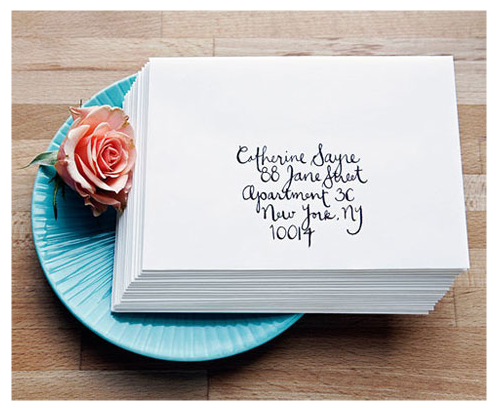 Catherine Sayre
88 Jane Street
Apartment 3C
New York, NY
10014